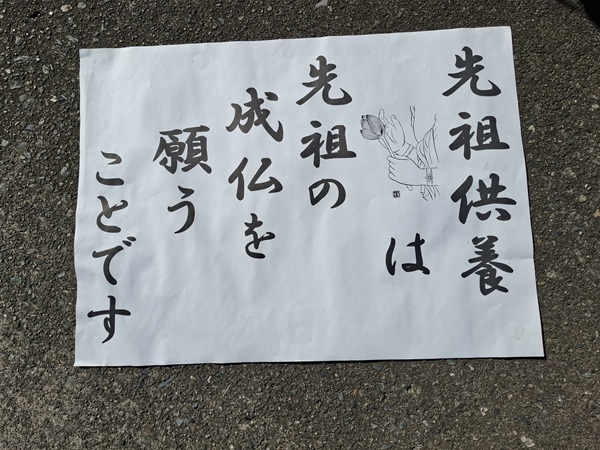 先祖供養
は
先祖の
成仏を
願う
ことです